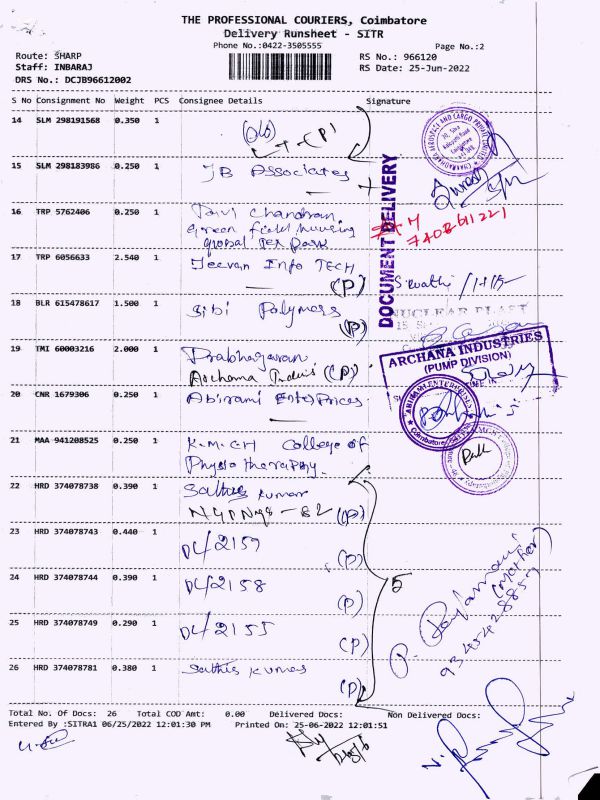 THE PROFESSIONAL COURIERS, Coimbatore
Delivery Runsheet - SITR
Phone No.:0422-3505555
Page No.:2
Route: SHARP
RS No.: 966120
Staff: INBARAJ
RS Date: 25-Jun-2022
DRS No.: DCJB96612002
S No Consignment No Weight PCS Consignee Details Signature
14 SLM 298191568 0.350 1
(P)
15 SLM 298183986 0.250 1 JB Associates
16 TRP 5762406 0.250 1 Ravi Chandran
Green field housing
global Tex Park
17 TRP 6056633 2.540 1 Jeevan Info TECH
(P)
18 BLR 615478617 1.500 1 Sibi Polymers
(P)
19 TMI 60003216 2.000 1 Prabhagaran
Archana (P)
20 CNR 1679306 0.250 1 Abirami Enterprices
21 MAA 941208525 0.250 1 K.M.CH College of
Physiotheraphy.
22 HRD 374078738 0.390 1 Sathis Kumar
(P)
23 HRD 374078743 0.440 1 DL/2159
(P)
24 HRD 374078744 0.390 1 DL/2158
(P)
25 HRD 374078749 0.290 1 DL/2155
(P)
26 HRD 374078781 0.380 1 Sathis Kumar
(P)
5
DOCUMENT DELIVERY
ARCHANA INDUSTRIES
(PUMP DIVISION)
ABIRAMI ENTERPRISES
Coimbatore
(Mother)
Total No. Of Docs: 26 Total COD Amt: 0.00 Delivered Docs: Non Delivered Docs:
Entered By :SITRA1 06/25/2022 12:01:30 PM Printed On: 25-06-2022 12:01:51